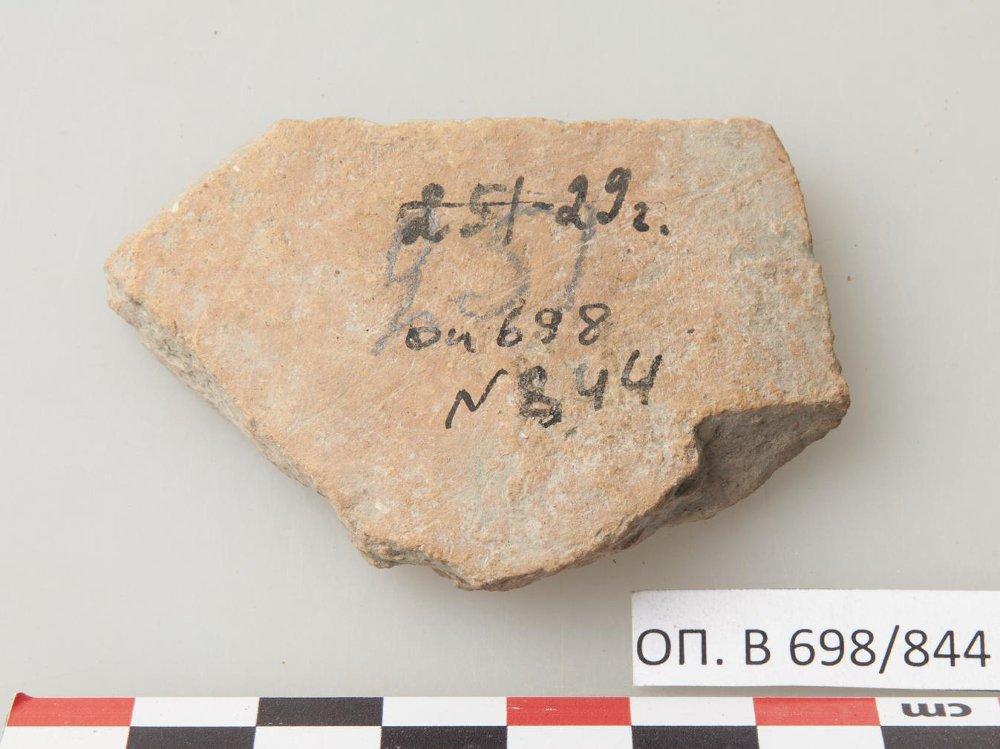 251-29г.
оп 698
N 844
ОП. В 698/844
cm